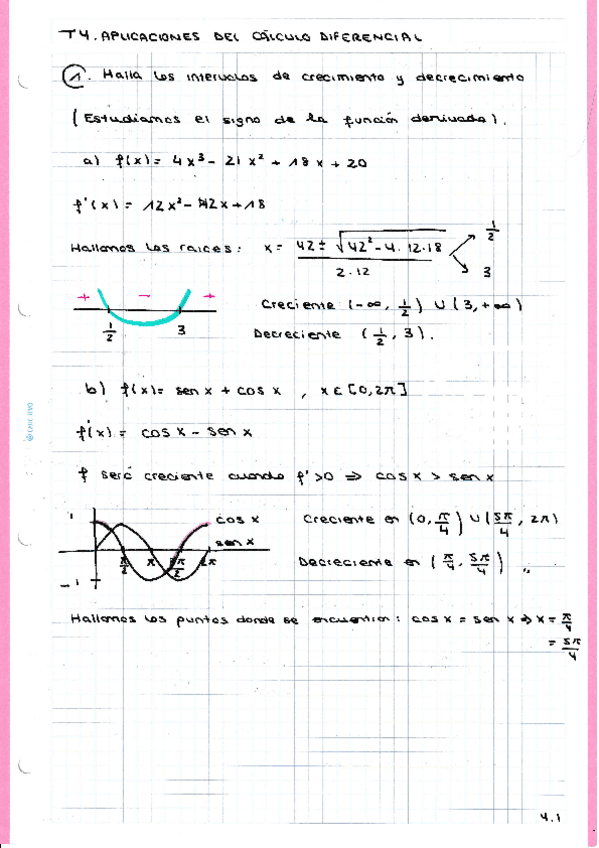 T4. APLICACIONES DEL CÁLCULO DIFERENCIAL
1. Halla los intervalos de crecimiento y decrecimiento
(Estudiamos el signo de la función derivada).
a) f(x) = 4x³ - 21x² + 18x + 20
f'(x) = 12x² - 42x + 18
Hallamos las raíces: x = 42 ± √42² - 4.12.18 / 2.12 → 1/2
→ 3
+ - +
1/2 3
Creciente (-∞, 1/2) ∪ (3, +∞)
Decreciente (1/2, 3).
b) f(x) = sen x + cos x , x ∈ [0, 2π]
f'(x) = cos x - sen x
f será creciente cuando f' > 0 ⇒ cos x > sen x
1 cos x
sen x
π/2 π 3π/2 2π
-1
Creciente en (0, π/4) ∪ (5π/4, 2π)
Decreciente en (π/4, 5π/4)
Hallamos los puntos donde se encuentran: cos x = sen x ⇒ x = π/4
= 5π/4
4.1